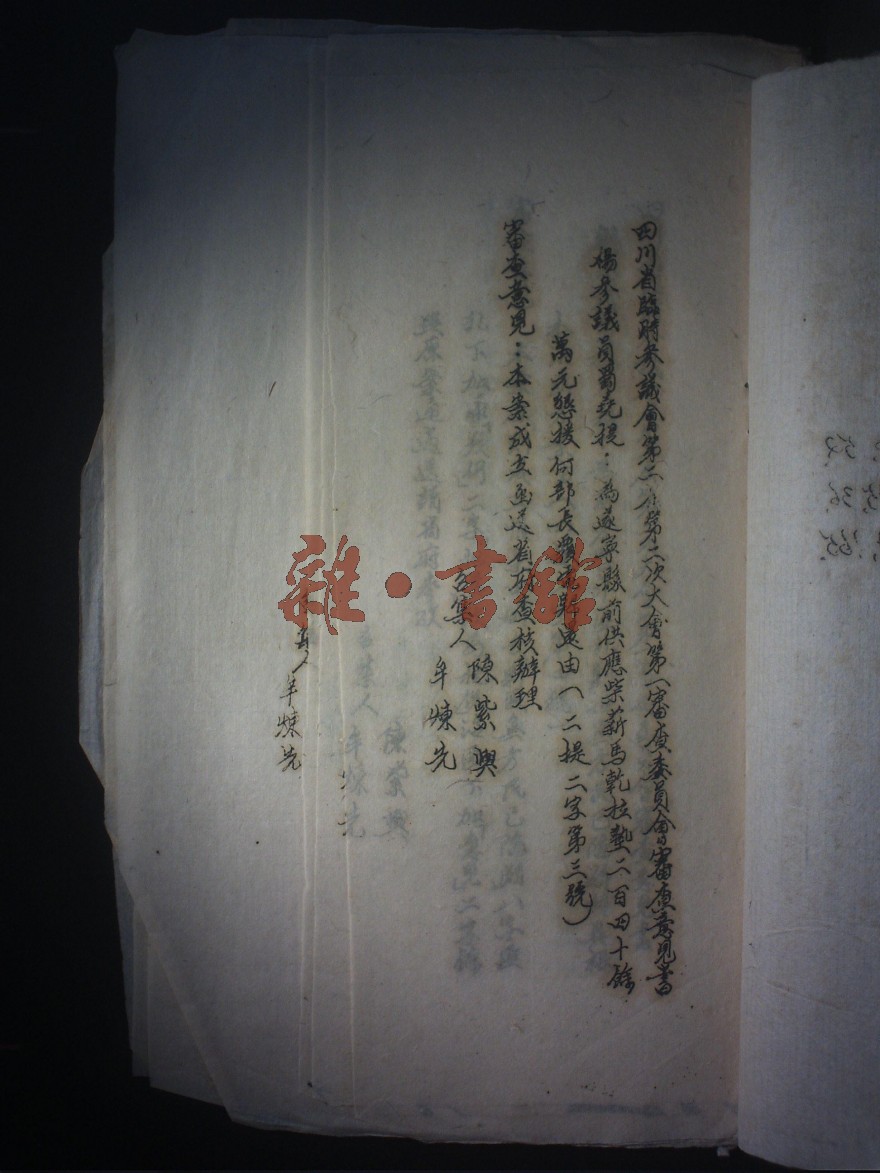 四川省臨時參議會第二屆第二次大會第一審查委員會審查意見書
楊參議員蜀尧提：為遂寧縣前供應柴薪馬乾拉墊二百四十餘
萬元懇援何部長 由（二提二字第三號）
審查意見：本案成立函送省府查核辦理
召集人 陳紫輿
牟煉先
牟煉先
雜·書館
53
36
165